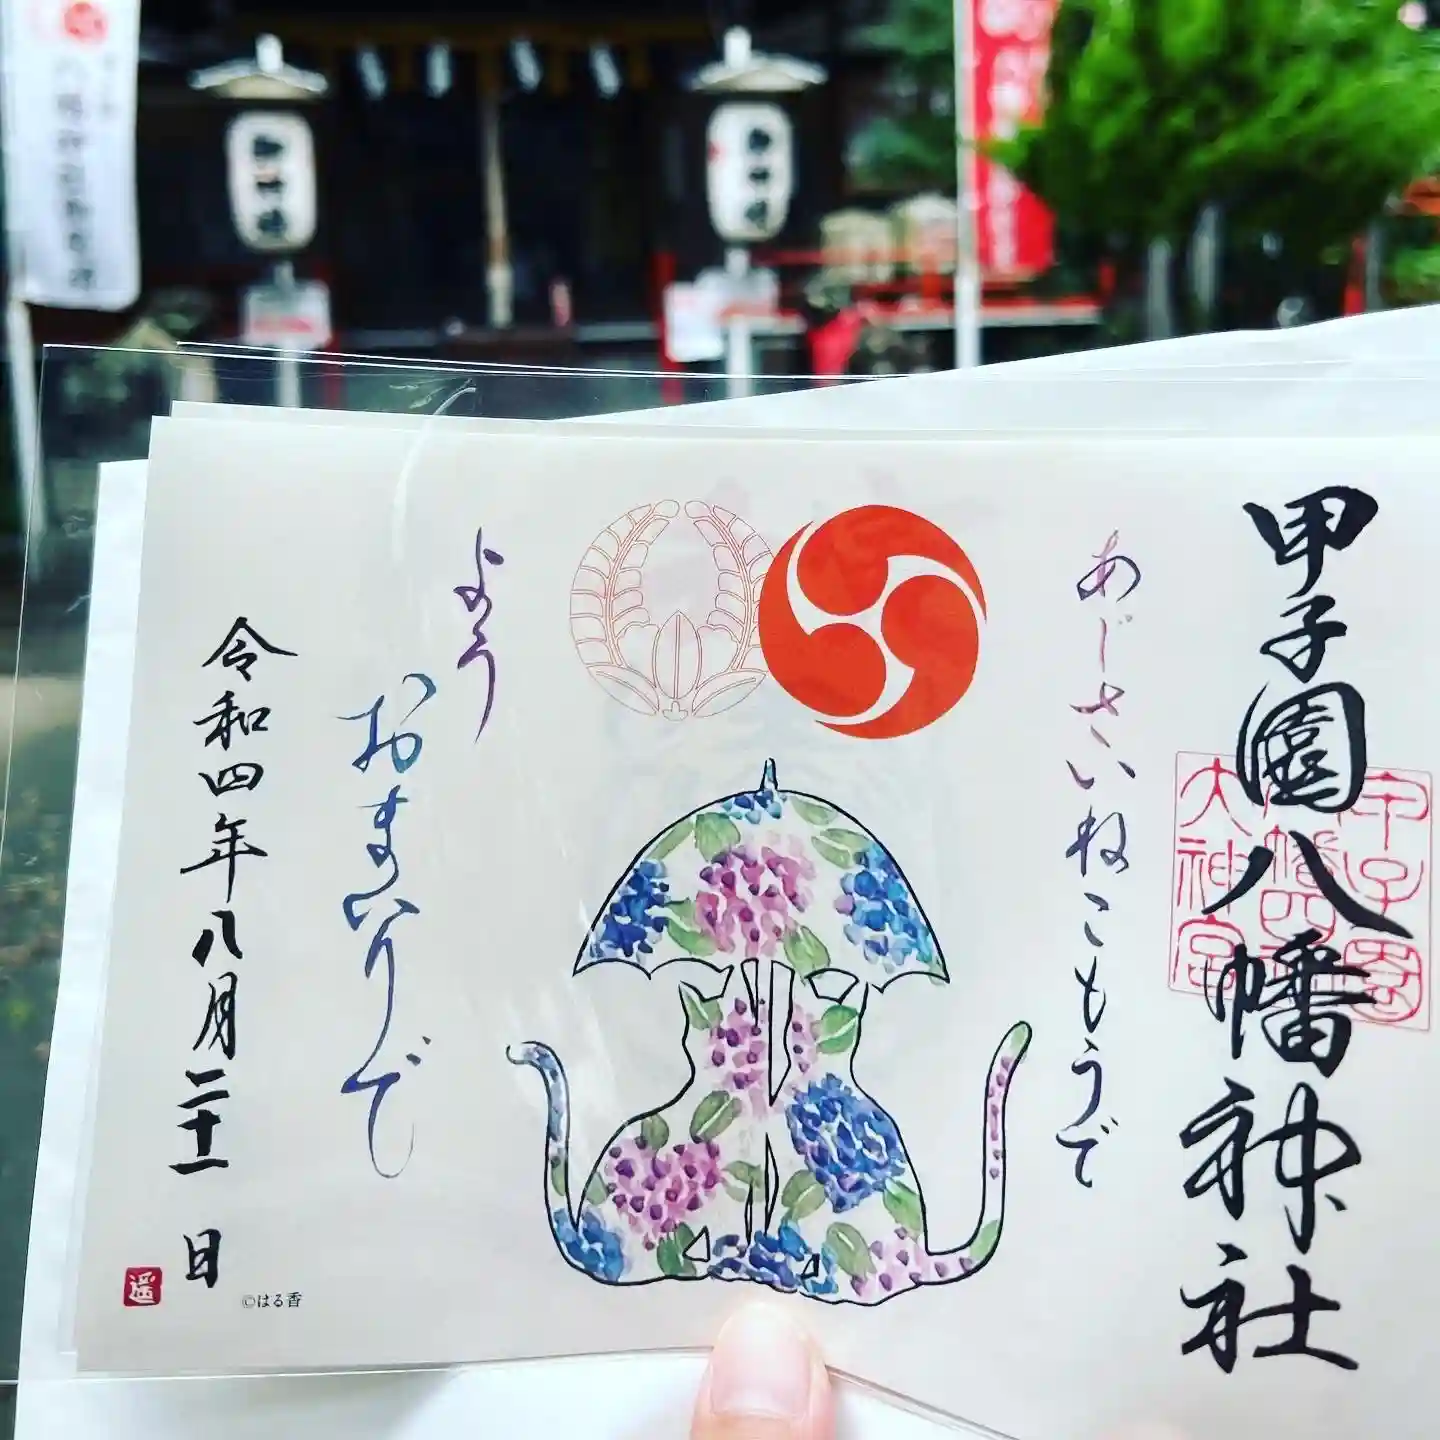 甲子園八幡神社
甲子園
八幡四
大神宮
あじさいねこもうで
よう
おまいりで
令和四年八月二十一日
遥
©はる香